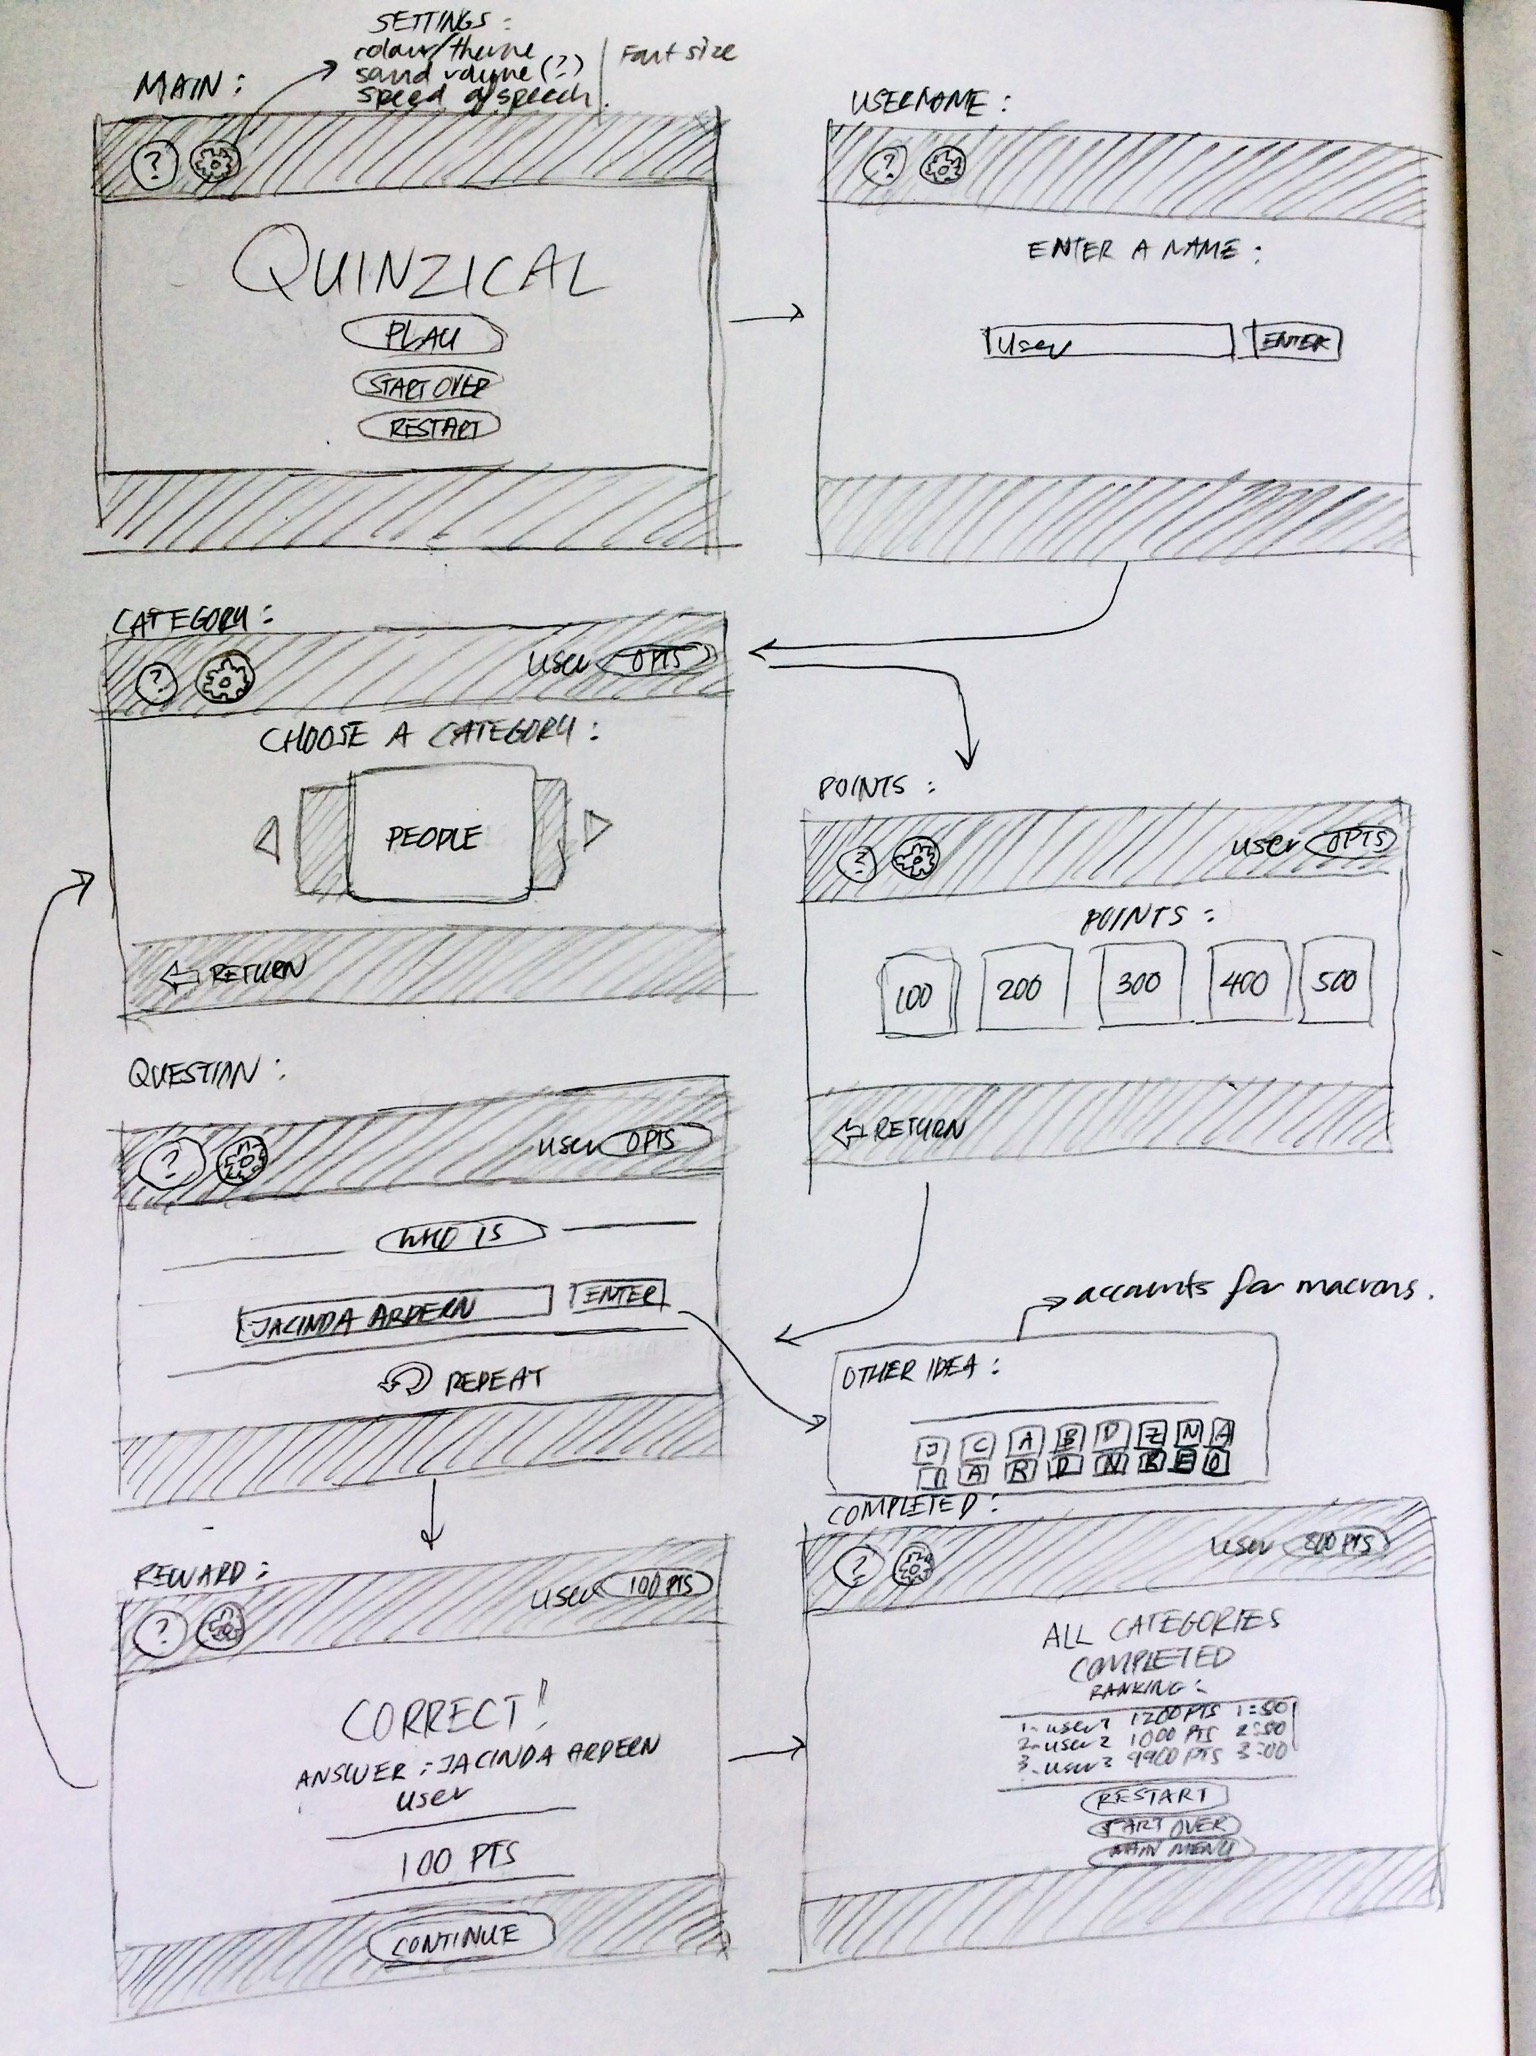 SETTINGS:
colour/theme
sound volume (?)
speed of speech.
Font size
MAIN:
?
QUINZICAL
PLAY
START OVER
RESTART
USERNAME:
?
ENTER A NAME:
User
ENTER
CATEGORY:
?
user 0PTS
CHOOSE A CATEGORY:
PEOPLE
RETURN
POINTS:
?
user 0PTS
POINTS:
100 200 300 400 500
RETURN
QUESTION:
?
user 0PTS
WHO IS
JACINDA ARDERN
ENTER
REPEAT
accounts for macrons.
OTHER IDEA:
J C A B D Z N A
I A R D N K E O
REWARD:
?
user 100PTS
CORRECT!
ANSWER: JACINDA ARDERN
user
100 PTS
CONTINUE
COMPLETED:
?
user 800PTS
ALL CATEGORIES
COMPLETED
RANKING:
1. user1 1200PTS 1:50
2. user2 1000 PTS 2:50
3. user3 9900 PTS 3:00
RESTART
START OVER
MAIN MENU